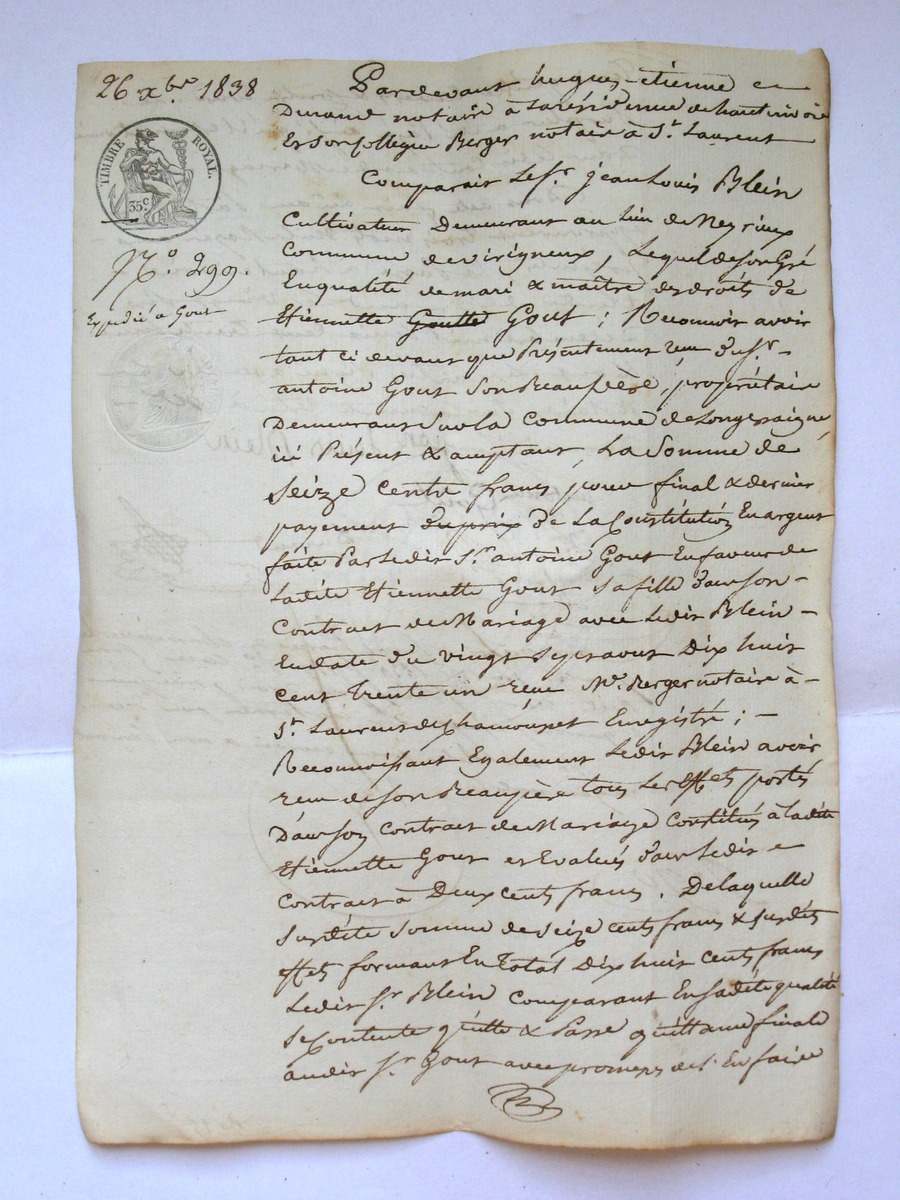 26 xbre 1838
TIMBRE ROYAL.
35c
No. 299.
Expedié a Gout
Pardevant hugues-etienne
Durand notaire à la résidence de hauterivoire
Et son Collègue Berger notaire à St. Laurent
Comparait le sr. jean Louis Blein
Cultivateur Demeurant au lieu de Neyrieux
Commune de virigneux, Lequel de Son Gré
En qualité de mari & maître des droits de
Etiennette Goutte Gout ; Reconnoit avoir
tant ci devant que Présentement reçu du sr.
antoine Gout Son Beaupère, propriétaire
Demeurant Sur la Commune de Longessaigne
ici Présent & acceptant, La Somme de
Seize Cents francs pour final & dernier
payement du prix de La Constitution En argent
faite Par Ledit Sr. antoine Gout En faveur de
Ladite Etiennette Gout sa fille dans son
Contract de Mariage avec Ledit Blein
En date du vingt Sept aout Dix huit
cent Trente un reçu Me. Berger notaire à
St. Laurent de Chamousset Enregistré ;
Reconnoissant Egalement Ledit Blein avoir
reçu de son Beaupère tous Les Effets portés
Dans son Contract de Mariage Constitués à ladite
Etiennette Gout et Evalués dans Ledit
Contract à Deux cents francs. De laquelle
Susdite Somme de Seize Cents francs & susdits
effets formant En Total Dix huit Cents francs
Ledit Sr. Blein Comparant En sadite qualité
Se Contente quitte & Passe quittance finale
audit Sr. Gout avec promesse de l'En faire